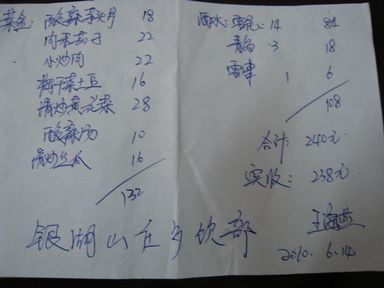 菜金: 酸辣芋头片 18
肉末茄子 22
小炒肉 22
梅干菜土豆 16
清炒黄花菜 28
酸辣汤 10
清炒丝瓜 16
132
酒水: 雪花: 14 84
青岛 3 18
雪津 1 6
108
合计: 240元
实收: 238元
银湖山庄餐饮部
2010.6.14